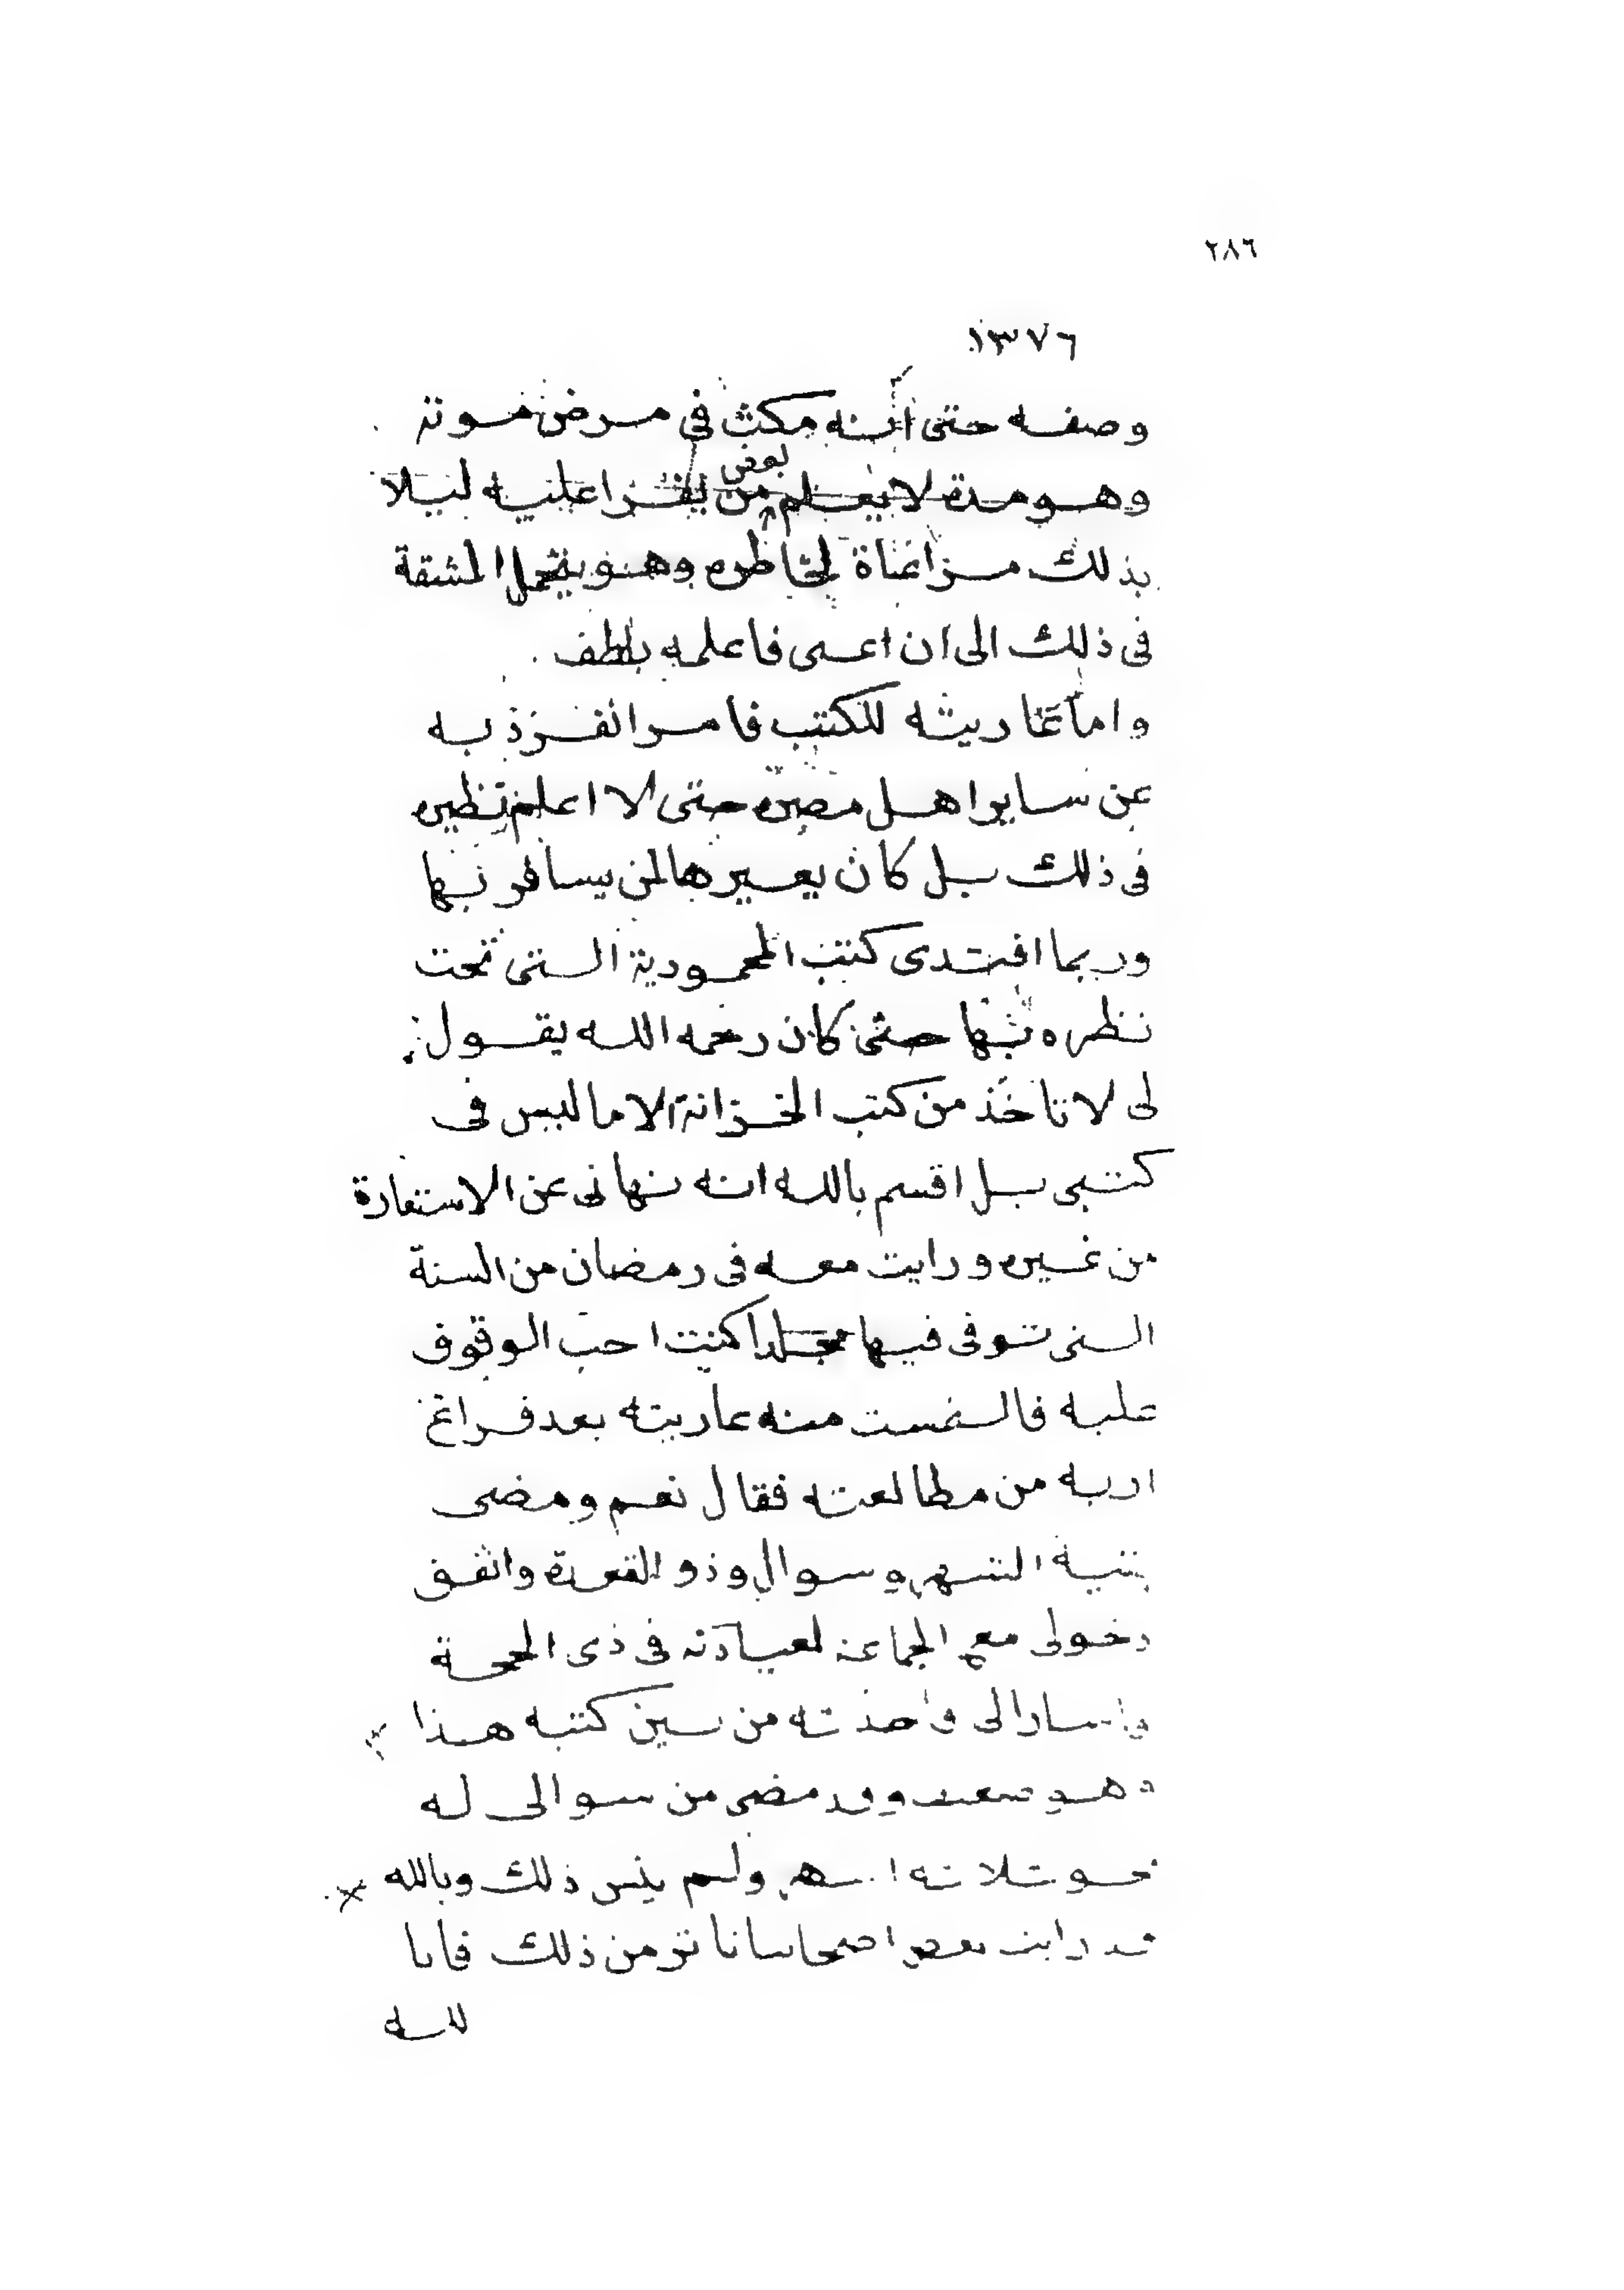 ٢٨٦
١٣٧٦
وصفه حتى انه مكث في مرض موته
وهو مدة لا يعلم بعض من يقرا عليه ليلا
بذلك مراعاة لخاطره وهو يتحمل المشقة
في ذلك الى ان اعمى فاعلمه بلطف .
واما عاريته للكتب فامر انفرد به
عن ساير اهل مصره حتى لا اعلم نظيره
في ذلك بل كان يعيرها لمن يسافر بها
وربما افتدى كتب المحمودية التي تحت
نظره بها حتى كان رحمه الله يقول
لى لا تاخذ من كتب الخزانة الا ما ليس في
كتبي بل اقسم بالله انه نهاني عن الاستعارة
من غيره ورايت معه في رمضان من السنة
التى توفى فيها مجلدا كنت احب الوقوف
عليه فالتمست منه عاريته بعد فراغ
اربه من مطالعته فقال نعم ومضى
بقية الشهر وشوال وذو القعدة واتفق
دخولى مع الجماعة لعيادته في ذى الحجة
فاشار الى فاخذته من بين كتبه هذا
وهو ضعيف وقد مضى من سوالى له
نحو ثلاثة اشهر ولم ينس ذلك وبالله
قد رايت بعض اصحابنا ناثر من ذلك فانا
لله